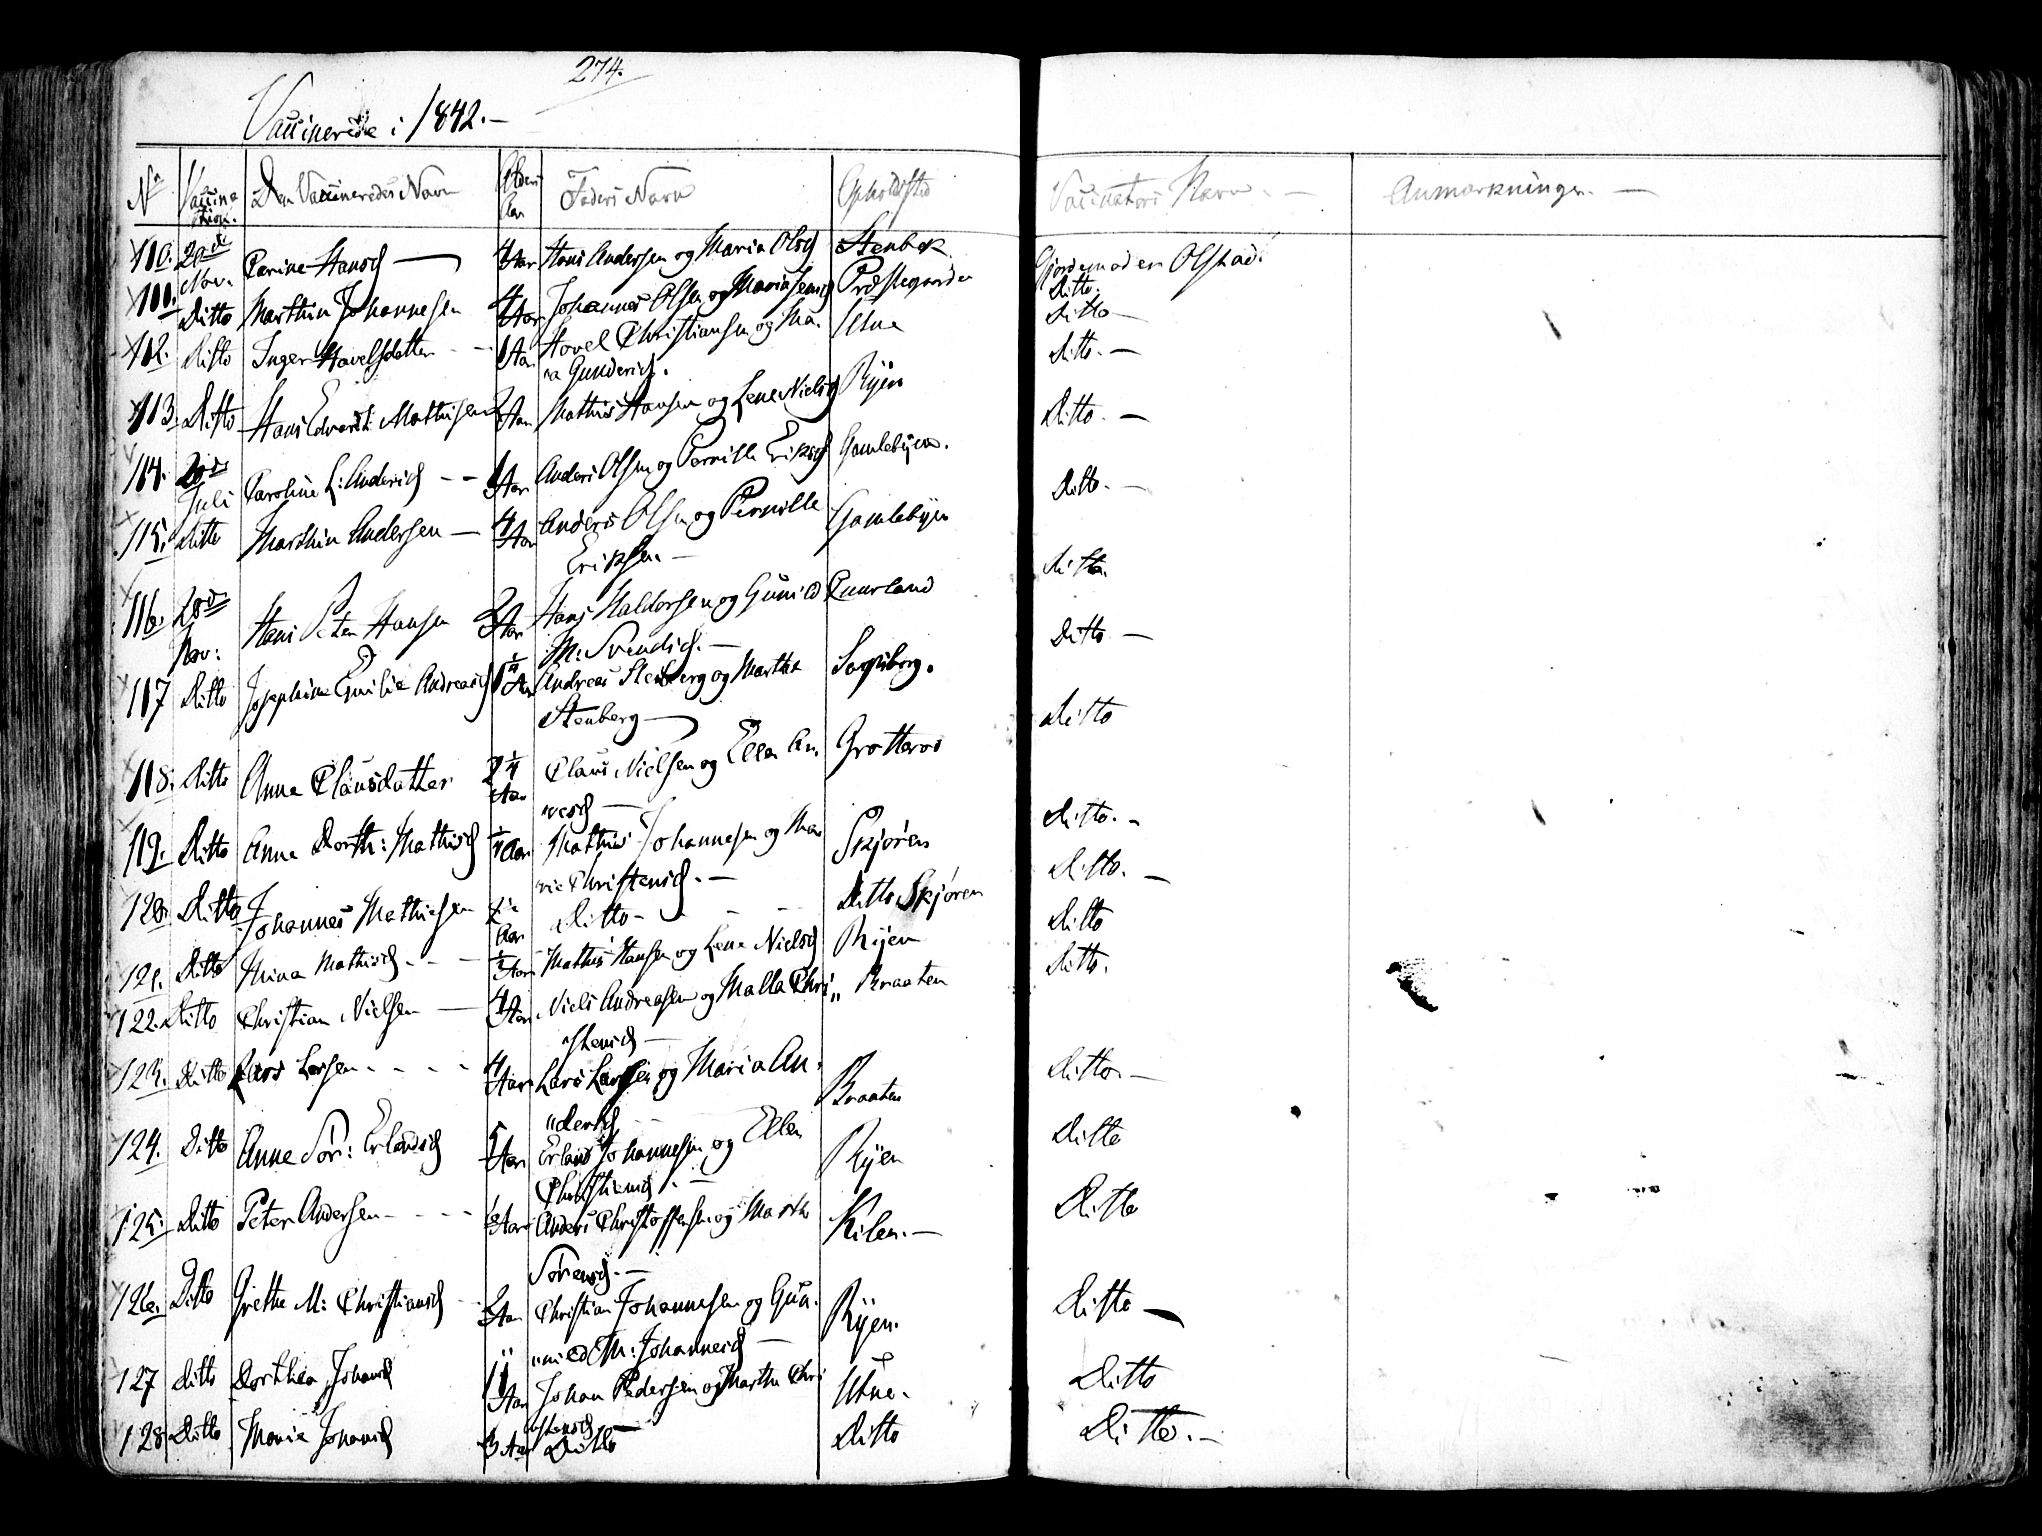 274.
Vaccinerede i 1842. —
No Vaccination. Den Vaccineredes Navn Alders Aar Faders Navn Opholdsted Vaccinators Navn. — Anmærkninger. —
110. 20de Nov. Karine Hansd — Aar Hans Andersen og Maria Olsd Stenbek Gjordemoder Olstad.
111. Ditto Marthin Johannesen 4 Aar Johannes Olsen og Maria Præstegaarden Ditto.
Ditto —
112. Ditto Inger Havelsdatter - - 1 Aar Hovel Christiansen og Ma. Utne Ditto. —
ra Gundersd.
113. Ditto Hans Edvard Mathisen 2 Aar Mathis Hansen og Lene Nielsd Ryen Ditto. —
114. 20de Juli Caroline L: Andersd - - Aar Anders Olsen og Pernille Eriksd Gamlebyen. Ditto. —
115. Ditto Marthin Andersen — 4 Aar Anders Olsen og Pernille Gamlebyen Ditto.
Eriksen. —
116. 28de Nov: Hans Peter Hansen 2 Aar Hans Haldorsen og Gunild Kuurland Ditto —
M: Svendsd. —
117 Ditto Josephine Emilie Andreasd 1 1/4 Aar Andreas Stenberg og Marthe Sarpsborg. Ditto
Stenberg —
118. Ditto Anne Clausdatter 2 1/4 Aar Claus Nielsen og Ellen An. Grotterød Ditto. -
dresd —
119. Ditto Anne Dorth: Mathisd 1/4 Aar Mathis Johannesen og Ma Skjøren Ditto. —
rie Christensd. —
120. Ditto Johannes Mathiesen Aar Ditto - - - - Ditto Skjøren Ditto
121. Ditto Mina Mathisd. - - Aar Mathis Hansen og Lene Nielsd Ryen Ditto.
122. Ditto Christian Nielsen — 4 Aar Niels Andreasen og Malla Chri " Braaten
stensd —
123. Ditto Lars Larsen - - - - 4 Aar Lars Larsen og Maria An. Braaten Ditto. —
"dersd
124. Ditto Anne Sør: Erlandsd 5 Aar Erland Johannesen og Ellen Ryen Ditto
Christiansd. —
125. Ditto Peter Andersen - - - - Aar Anders Christoffersen og Marthe Kilen. — Ditto
Sørensd. —
126. Ditto Grethe M: Christiansd 2 Aar Christian Johannesen og Gun. Ryen. Ditto —
"nild M: Johannesd —
127 Ditto Dorthea Johansd 11 Aar Johan Pedersen og Marthe Chri Utne. Ditto
stensd
128 Ditto Marie Johansd 3 Aar Ditto Ditto Ditto. —